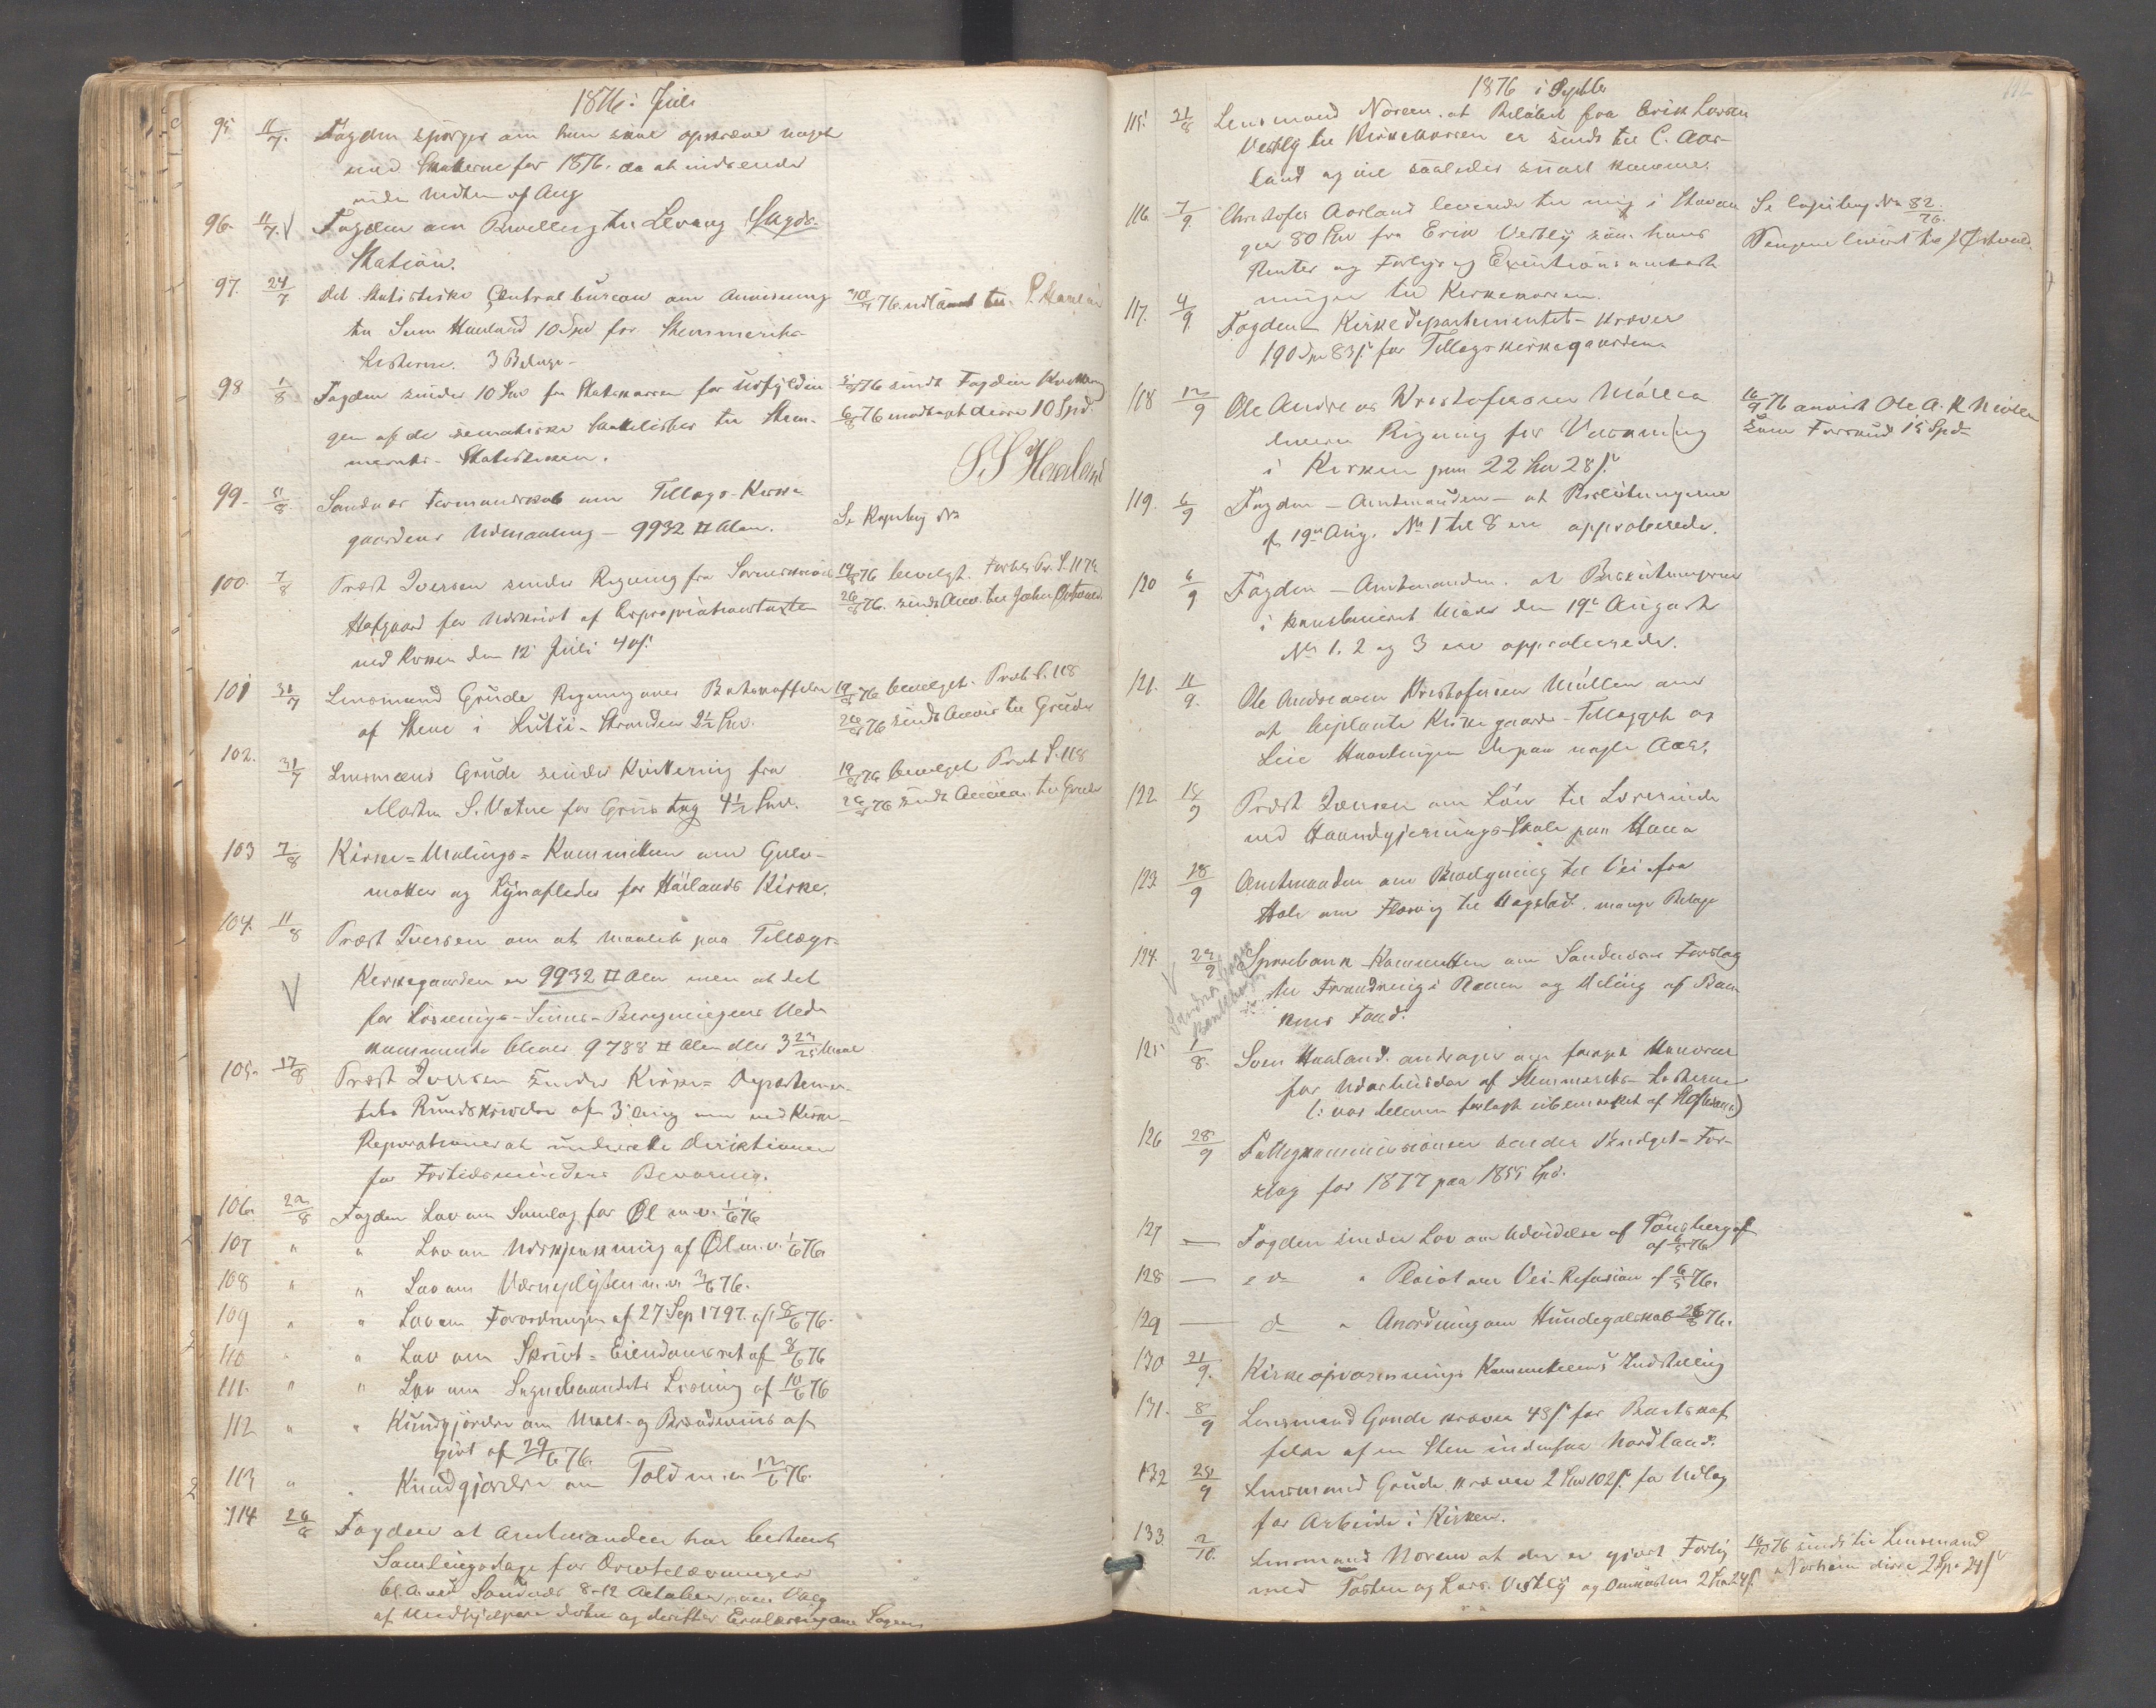 1876 i Juli
95. 11/7. Fogden spørger om han skal opkræve noget
med Skatterne for 1876. da at indsende
inden Midten af Aug
96. 11/7. V Fogden om Bevilling til Levang Skyds-
Station.
97. 24/7 Det Statistiske Centralbureau om Anvisning
til Sven Haaland 10 Spd for Stemmerets-
Listerne. 3 Bilage.
30/7 76. udlaant til
98 1/8 Fogden sender 10 Spd fra Statskassen for Udfyldin-
gen af de sematiske Hovedlister til Stem-
merets-Statistiken.
5/8 76 sendt Fogden Kvittering
6/8 76 modtaget disse 10 Spd.
S S Haaland
99. 11/8 Sandnes Formandskab om Tillægs-Kirke-
gaardens Udmaaling - 9932 □ Alen.
Se Kopibog No
100. 7/8 Præst Iversen sender Regning fra Sorenskriver
Hofgaard for Udskrift af Expropriationstaxten
ved Kirken den 12 Juli 40 s.
19/8 76 bevilget. Forh. Pr. S. 117
26/8 76. sendt Anv. til John Østraat
101 31/7 Lensmand Grude Regning over Bortskaffelse
af Stene i Lutsi-Stranden 2½ Spd.
19/8 76 bevilget. Prot. S. 118
26/8 76 sendt Anvis til Grude
102. 31/7 Lensmand Grude sender Kvittering fra
Morten S. Vatne for Grustag 4½ Spd.
19/8 76 bevilget Prot S. 118
26/8 76 sendt Anvisn. til Grude
103 7/8 Kirke=Malings=Kommitteen om Gulv-
matter og Lynafleder for Høilands Kirke.
104. 11/8 Præst Iversen om at Maalet paa Tillægs-
V Kirkegaarden er 9932 □ Alen men at det
for Løsnings-Sums-Beregningens Ved-
kommende bliver 9788 □ Alen eller 3 23/25 Maal
105. 17/8 Præst Iversen sender Kirke=Departemen-
tets Rundskrivelse af 3 Aug om ved Kirke-
Reparationer at underrette Direktionen
for Fortidsminders Bevaring.
106. 22/8 Fogden Lov om Samlag for Øl m.v. 1/6 76
107 " " Lov om Udskjænkning af Øl m.v. 1/6 76.
108 " " Lov om Værnepligten m.v. 3/6 76.
109 " " Lov om Forordningen af 27 Sep 1797. af 8/6 76.
110 " " Lov om Skrift=Eiendomsret af 8/6 76
111. " " Lov om Sognebaandets Løsning af 10/6 76
112 " " Kundgjørelse om Malt- og Brændevins af-
gift af 29/6 76.
113 " " Kundgjørelse om Told m.v. 12/6 76.
114 26/8 Fogden at Amtmanden har bestemt
Samlingsdage for Overtelævninger
bl. A. ved Sandnæs 8-12 Oktober, om Valg
af Medhjælpere dertil og derefter Erklæring om Sagen
1876 i Septbr
115. 21/8 Lensmand Noreim. at Beløbet fra Erik Larsen
Vestly til Kirkekassen er sendt til C. Aar-
land og vil saaledes snart komme.
116 7/9. Christofer Aarland leverede til mig i Stavan-
ger 80 Spd fra Erik Vestly som hans
Renter og Forligs og Exekutions omkost-
ninger til Kirkekassen.
Se Copibog No 82/76.
Pengene leveret til J Østraat.
117. 4/9. Fogden - Kirkedepartementet - kræver
190 Spd 83 s for Tillægskirkegaarden
118 12/9 Ole Andreas Kristofersen Møller
leverer Regning for Vasking
i Kirken paa 22 Spd 28 s.
16/9 76 anvist Ole A. K Møller
som Forskud 15 Spd
119. 6/9 Fogden - Amtmanden - at Beslutningerne
af 19de Aug. No 1 til 8 ere approberede.
120 6/9 Fogden - Amtmanden. at Beslutningerne
i kombineret Møde den 19de August
No 1. 2 og 3 ere approberede.
121. 11/9. Ole Andreasen Kristofersen Møller om
at beplante Kirkegaards-Tillægget og
Leie Haavlingen depaa nogle Aar.
122 14/9 Præst Iversen om Løn til Lærerinde
ved Haandgjernings-Skole paa Hana
123. 18/9 Amtmanden om Bevilgning til Vei fra
Hole om Flasvig til Hagstad. mange Bilage
124. 23/9 Sparebank-Kommitteen om Sandnæs Forslag
V til Forandring i Planen og Deling af Ban-
kens Fond.
125. 1/8. Sven Haaland. andrager om forøget Honorar
for Udarbeidelse af Stemmerets-Listerne
(: var bleven forlagt ubemærket af Hofland)
126 28/9 Fattigkommissionen sender Budget-For-
slag for 1877 paa 1855 Spd.
127 — Fogden sender Lov om Udvidelse af Tønsberg af
af 6/5 76
128 — s d " Placat om Vei-Refusion af 6/5 76.
129 — d " Anordning om Hundegalskab 26/8 76.
130 21/9. Kirkeopvarmnings Kommitteens Indstilling
131. 8/9 Lensmand Grude kræver 48 s for Bortskaf-
felse af en Sten indenfor Nordland.
132 25/9 Lensmand Grude kræver 2 Spd 102 s. for Udlæg
for Arbeide i Kirken.
133. 2/10. Lensmand Noreim at der er gjort Forlig
med Torsten og Lars Vestly og Omkosten 2 Spd 24 s.
16/10 76 sendt til Lensmand
Noreim disse 2 Spd 24 s